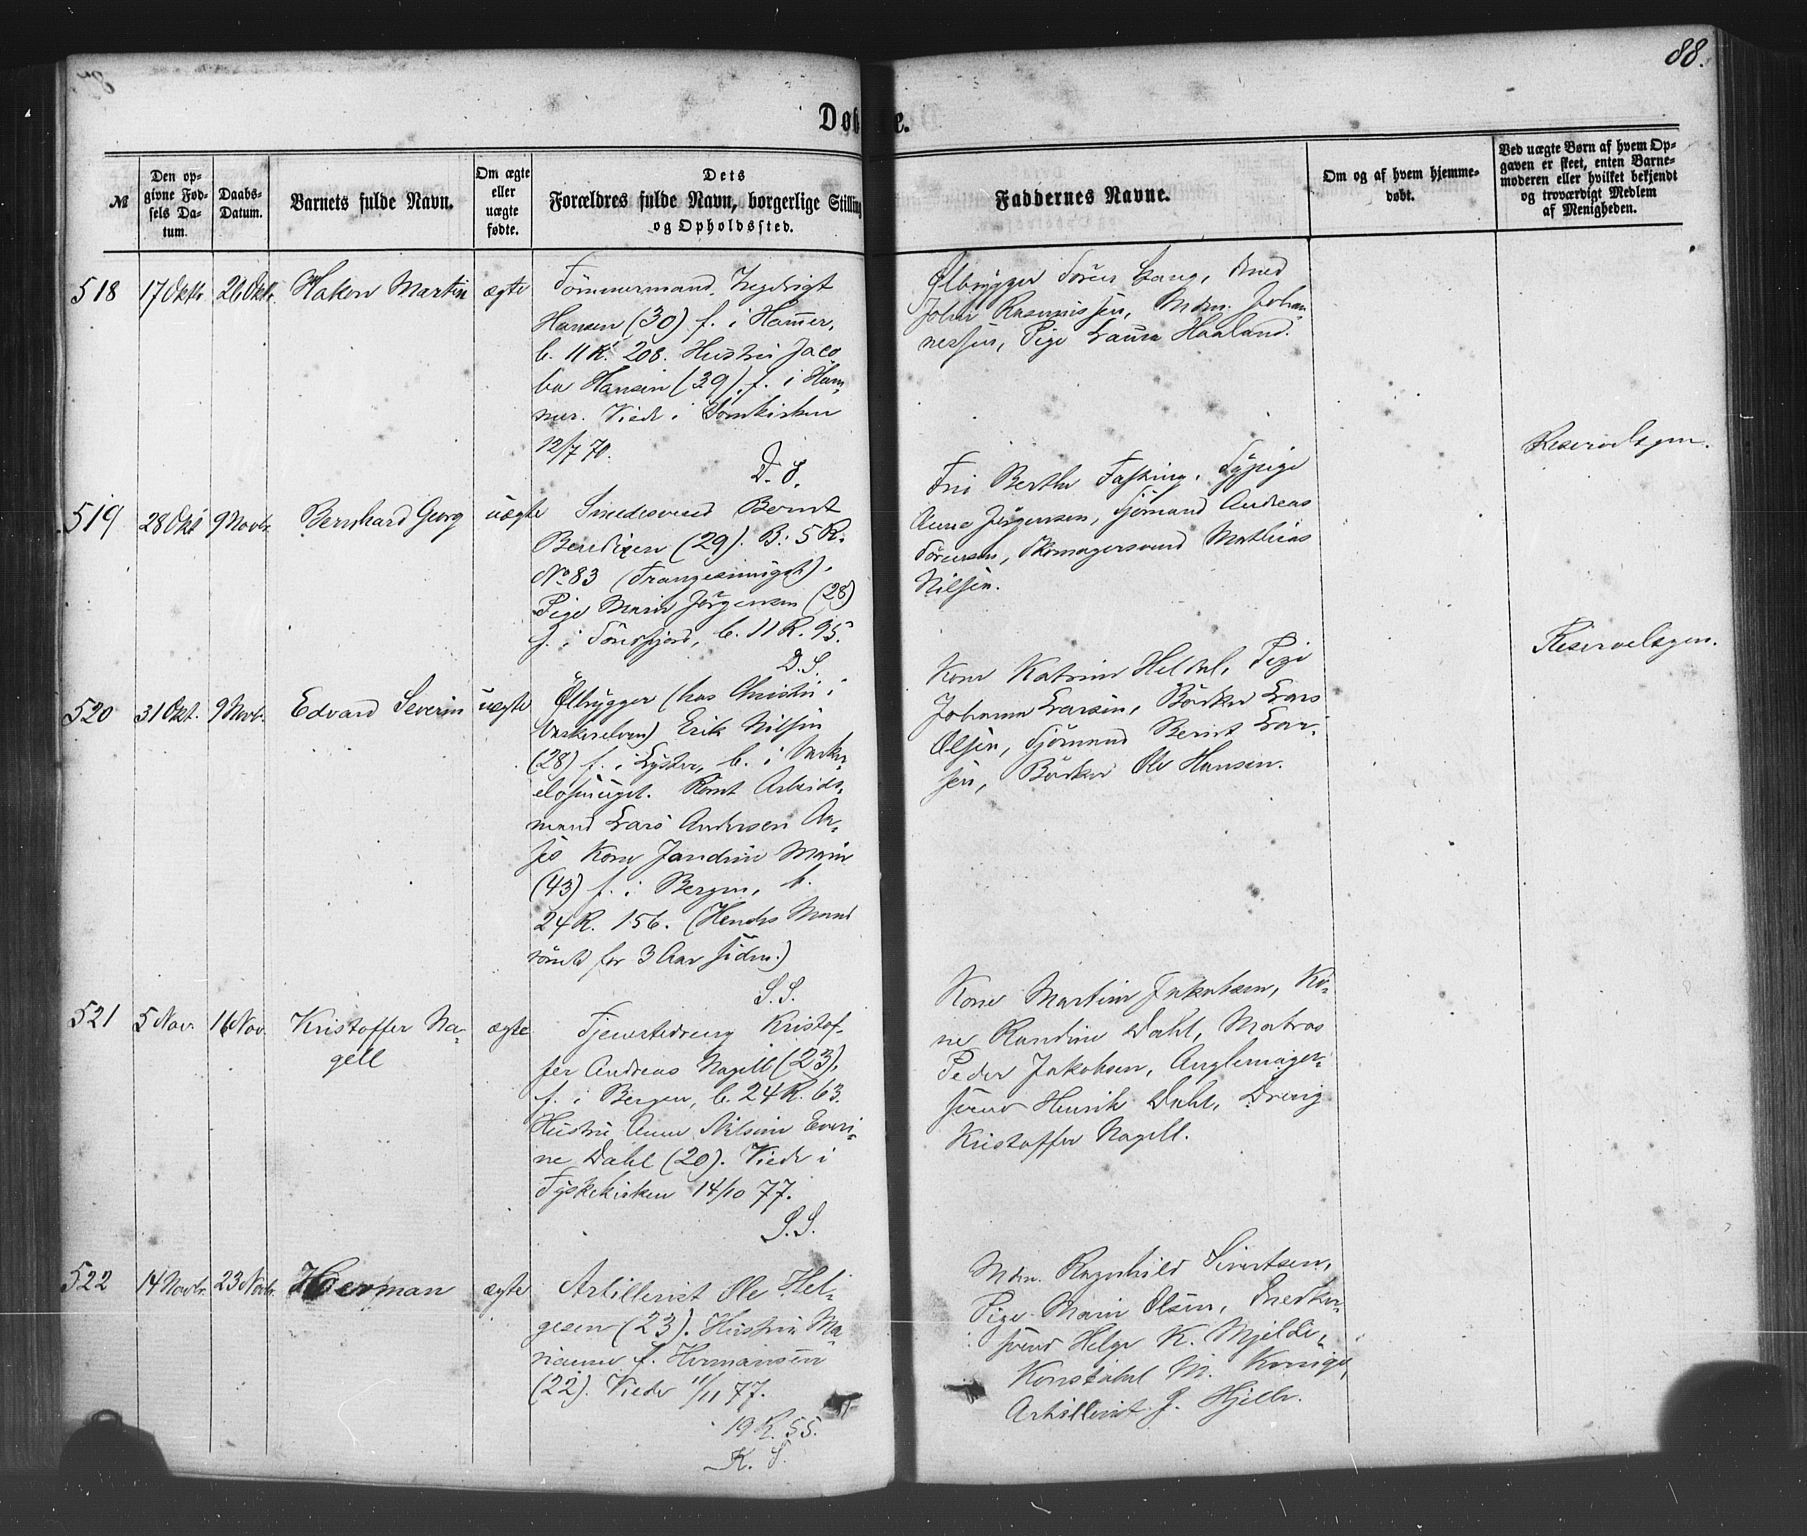 88.
Døbte.
№
Den op-
givne Fød-
sels Da-
tum.
Daabs-
Datum.
Barnets fulde Navn.
Om ægte
eller
uægte
fødte.
Dets
Forældres fulde Navn, borgerlige Stilling
og Opholdssted.
Faddernes Navne.
Om og af hvem hjemme-
døbt.
Ved uægte Børn af hvem Op-
gaven er skeet, enten Barne-
moderen eller hvilket bekjendt
og troværdigt Medlem
af Menigheden.
518 17 Oktb. 26 Oktb. Hakon Martin ægte
Tømmermand Ingebrigt
Hansen (30) f. i Hammer,
b. 11 R. 208. Hustru Jaco-
ba Hansen (39), f. i Ham-
mer. Viede i Domkirken
12/7 70.
D. S.
Ølbrygger Sören Lang, Smed
Johan Rasmussen, Mdm. Johan-
nessen, Pige Laura Haaland.
519 28 Okt 9 Novb. Bernhard Georg uægte
Smedesvend Berent
Bendixen (29). B: 5 R.
No 83 (Trangesmuget).
Pige Marie Jørgensen (28)
f. i Söndfjord, b. 11 R. 95.
D. S.
Fru Berthe Fasting, Sypige
Anne Jørgensen, Sjömand Andreas
Sörensen, Skomagersvend Mathias
Nilsen.
Reservelsgen.
520 31 Okt. 9 Novb. Edvard Severin uægte
Ølbrygger (hos Christie i
Vaskerelven) Erik Nilsen
(28) f. i Lyster, b. i Vasker-
elvsmuget. Römt Arbeids-
mand Lars Andersen An-
Kone Jandine Marie
(43) f. i Bergen, b.
24 R. 156. (Hendes Mand
römte for 3 Aar siden.)
S. S.
Kone Katrine Heldal, Pige
Johanna Larsen, Bödker Lars
Olsen, Sjömand Bernt Lar-
sen, Bödker Ole Hansen.
Reservelsgen.
521 5 Nov. 16 Nov. Kristoffer Na-
gell
ægte
Tjenestedreng Kristof-
fer Andreas Nagell (23),
f. i Bergen, b. 24 R. 63.
Hustru Anne Nilsine Everi-
ne Dahl (20). Viede i
Tyskekirken 14/10 77.
S. S.
Kone Martine Jakobsen, Ko-
ne Randine Dahl, Matros
Peder Jakobsen,
svend Henrik Dahl, Dreng
Kristoffer Nagell.
522 14 Novbr. 23 Novb. Herman ægte
Artillerist Ole Hel-
gesen (23). Hustru Ma-
rianne f. Hermansen
(22). Viede 11/11 77.
19 R. 55.
K. S.
Mdm. Ragnhild Sivertsen,
Pige Marie Olsen, Snedker-
svend Helge K. Mjelde,
Konstabel M.
Artillerist J. Hjelle.